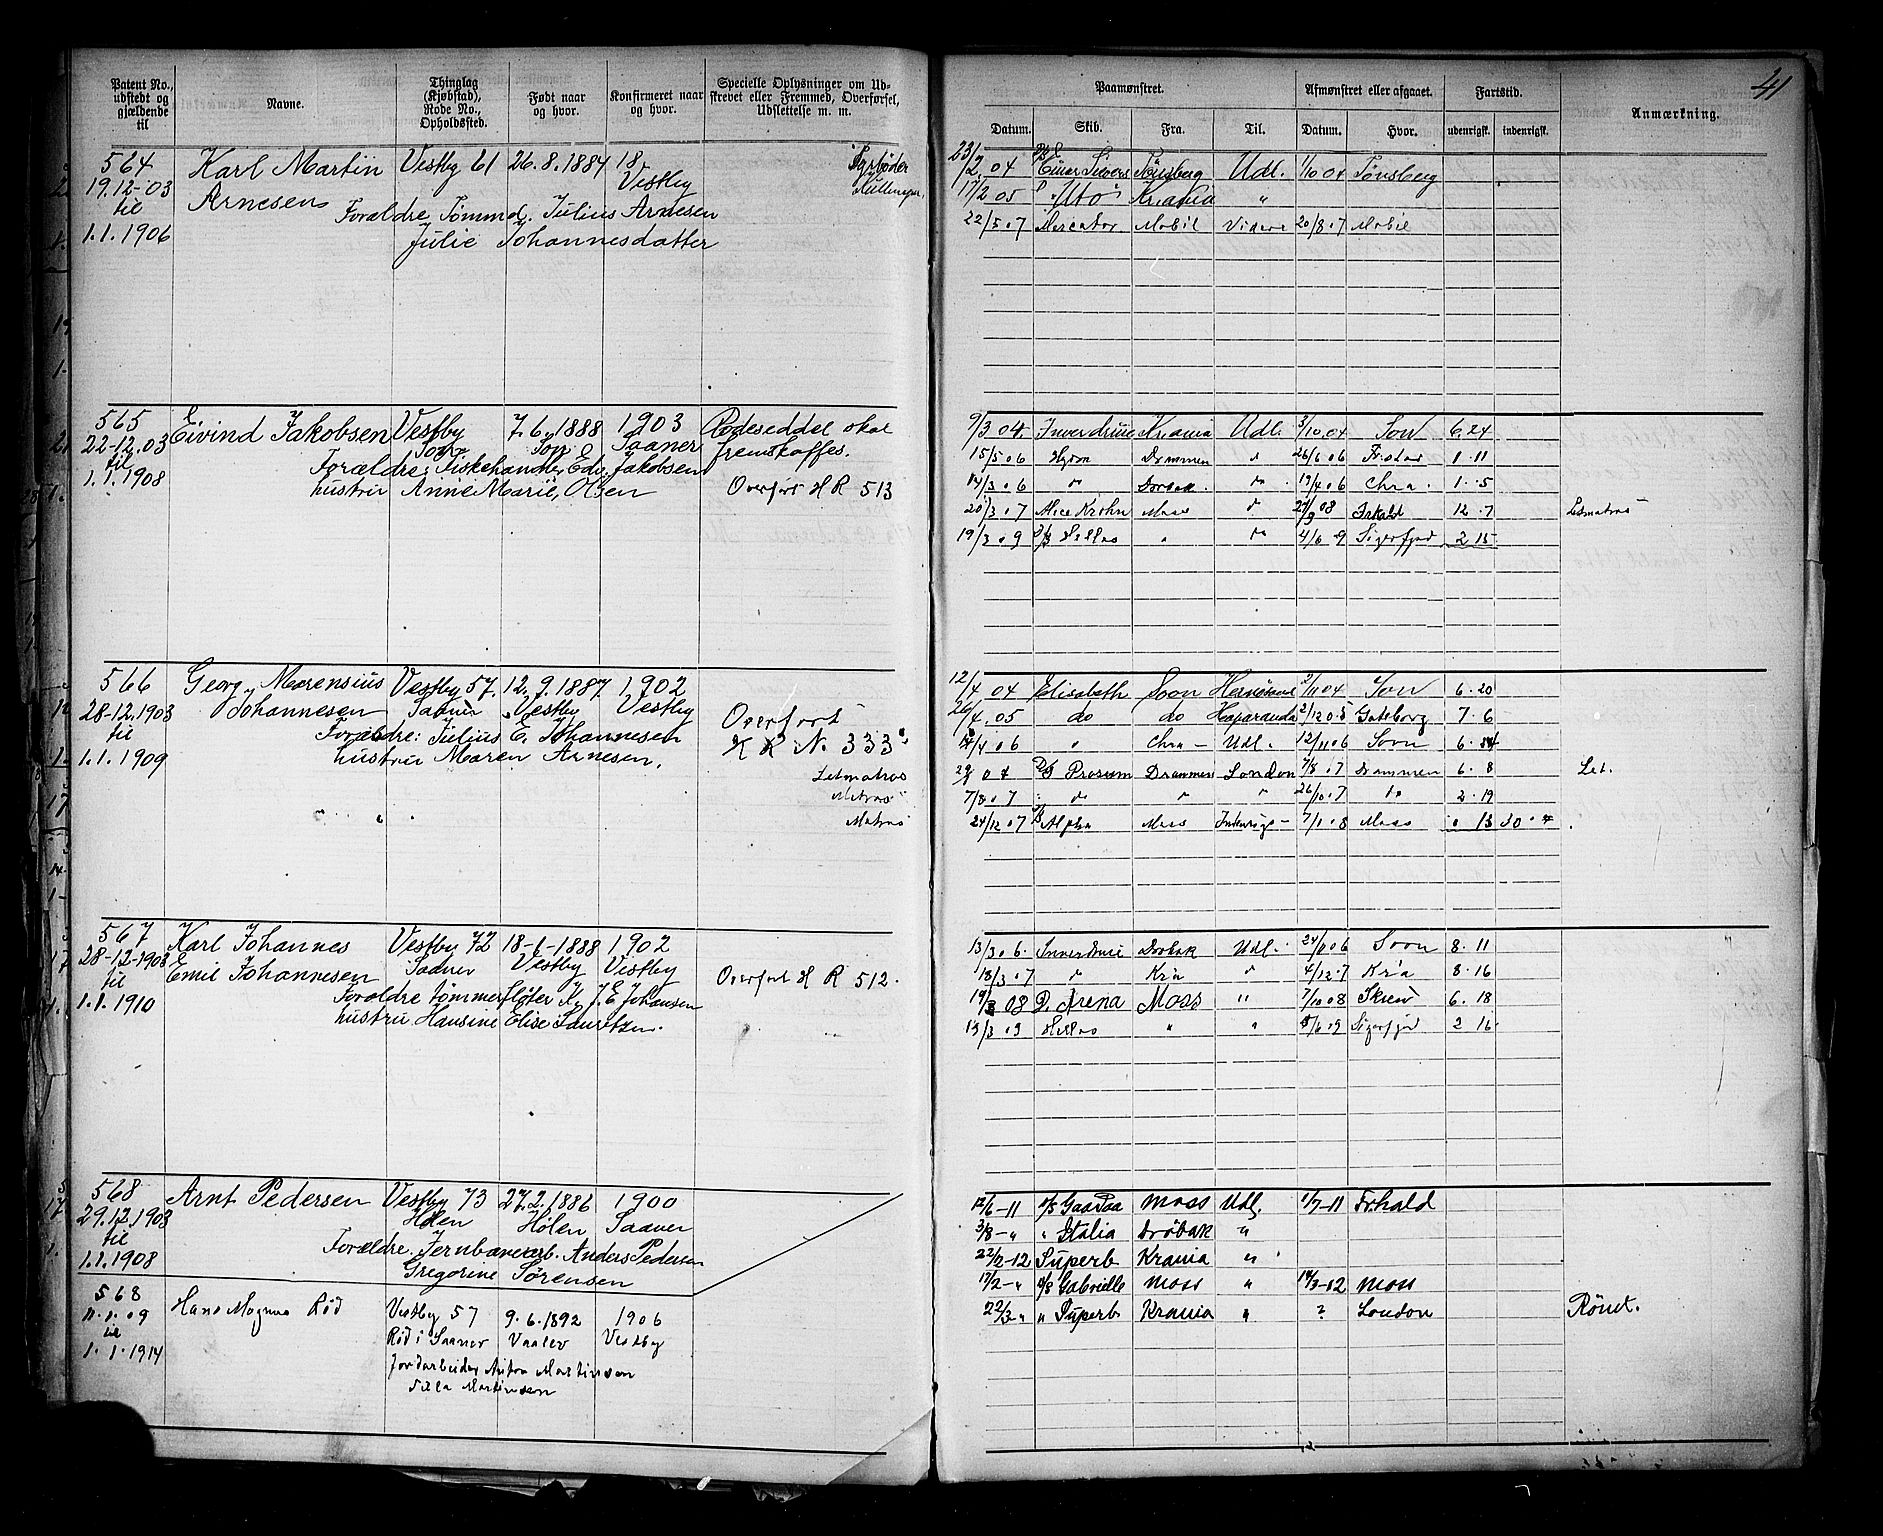 41
Patent No., udstedt og gjældende til
Navne.
Thinglag (Kjøbstad), Rode No., Opholdssted.
Født naar og hvor.
Konfirmeret naar og hvor.
Specielle Oplysninger om Udskrevet eller Fremmed, Overførsel, Udslettelse m. m.
Paamønstret.
Afmønstret eller afgaaet.
Fartstid.
Anmærkning.
Datum. Skib. Fra. Til. Datum. Hvor. udenrigsk. indenrigsk.
564 Karl Martin Vestby 61 26.8.1884 18 Fyrbøder
19.12-03 Arnesen Vestby
til Forældre, Tømmd. Julius Arnesen
1.1.1906 Julie Johannesdatter
23/2.04 Tønsberg Udl. 1/10 04 Tønsberg
17/2 05 "Uto" Krania "
22/5.07 Mercator Mobil 20/8.07 Mobil
565 Eivind Jakobsen Vestby 7.6.1888 1903 Rodeseddel skal
22-12.03 Son Son Saaner fremskaffes.
til Forældre: Fiskehandler Edv. Jakobsen
1.1.1908 hustru Anne Marie Olsen Overført H R 513
9/3 04. Krania Udl. 3/10 04 Son 6.24
15/5 06 Drammen " 26/6 06 1.11
14/3.06 " " 19/4 06 Chra. 1.5
20/3.07 Alice Krohn Moss " 08 12.7 Letmatros
19/3.09 D/S Hellas " " 4/6 09 Sigerfjord 2 15
566 Georg Marensius Vestby 57. 12.9.1887 1902
28-12.1903 Johannesen Saaner Vestby Vestby Overført
til Forældre: Julius E. Johannesen H R No 333
1.1.1909 hustru Maren Arnesen.
Letmatros
Matros
12/4.04 Elisabeth Soon Hernösand 2/11 04 Son 6.20
26/4.05 do do Haparanda 2/12 05 Gøteborg 7.6
4/4.06 " Chra - Udl. 12/11 06 Soon 6.
D/S Prosum Drammen London 7/8.07 Drammen 6.8 Let.
7/8.07 do " " 26/10.07 do 2.19
24/12.07 D/S Alpha Moss 7/1.08 Moss 0 13
567 Karl Johannes Vestby 72 18-6-1888 1902
28-12-1903 Emil Johannesen Saaner Vestby Vestby Overført H R 512.
til Forældre tømmerfløter J. E. Johansen
1.1.1910 hustru Hansine Elise Lauritzen.
13/3 06. Drøbak Udl. 06 Soon 8.11
18/3.07 " Kria " 4/12.07 Kria 8.16
08 D. Arena Moss " 7/10 08 Skien 6.18
13/3.09 Hellas " " 6 09 Sigerfjord 2 16
568 Arnt Pedersen Vestby 73 27.2.1886 1900
29.12.1903 Hølen Hølen Saaner
til Forældre: Jernbanearb. Anders Pedersen
1.1.1908 Gregorine Sørensen
12/6-11 D/S Gaa Paa Moss Udl. 1/7-11 Fr.hald
3/8-" " Italia Drøbak "
22/2-12 Superb Krania "
17/2-" D/S Gabrielle Moss " 14/3-12 Moss
22/3-" " Superb Krania " ? London Rømt.
568 Hans Magnus Rød Vestby 57 9.6.1892 1906
09 Rød i Saaner Vaaler Vestby
til Jordarbeider Anton Martinsen
1.1.1914 Martinsen